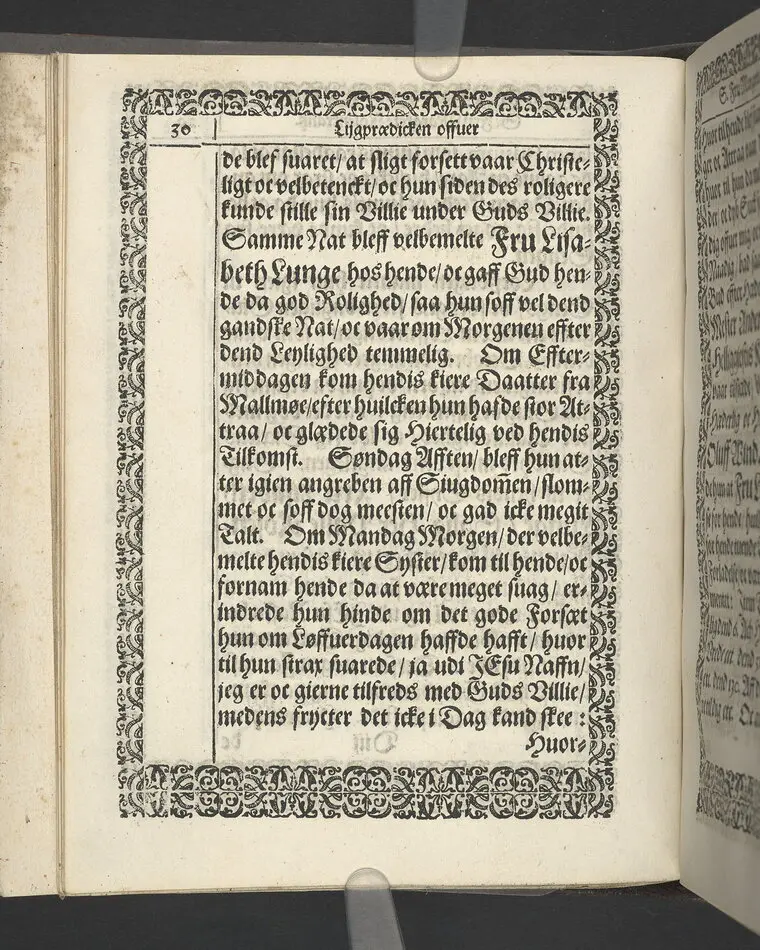 30
Lijgprædicken offuer
de blef suaret/ at sligt forsett vaar Christe-
ligt oc velbetenckt/ oc hun siden des roligere
kunde stille sin Villie under Guds Villie.
Samme Nat bleff velbemelte Fru Lisa-
beth Lunge hos hende/ oc gaff Gud hen-
de da god Rolighed/ saa hun soff vel dend
gandske Nat/ oc vaar om Morgenen effter
dend Leylighed temmelig. Om Effter-
middagen kom hendis kiere Daatter fra
Mallmøe/ efter huilcken hun hafde stor At-
traa/ oc glædede sig Hiertelig ved hendis
Tilkomst. Søndag Afften/ bleff hun at-
ter igien angreben aff Siugdom̃en/ slom-
met oc soff dog meesten/ oc gad icke megit
Talt. Om Mandag Morgen/ der velbe-
melte hendis kiere Syster/ kom til hende/ oc
fornam hende da at være meget suag/ er-
indrede hun hinde om det gode Forsæt
hun om Løffuerdagen haffde hafft/ huor
til hun strax suarede/ ja udi JEsu Naffn/
jeg er oc gierne tilfreds med Guds Villie/
medens frycter det icke i Dag kand skee :
Huor-